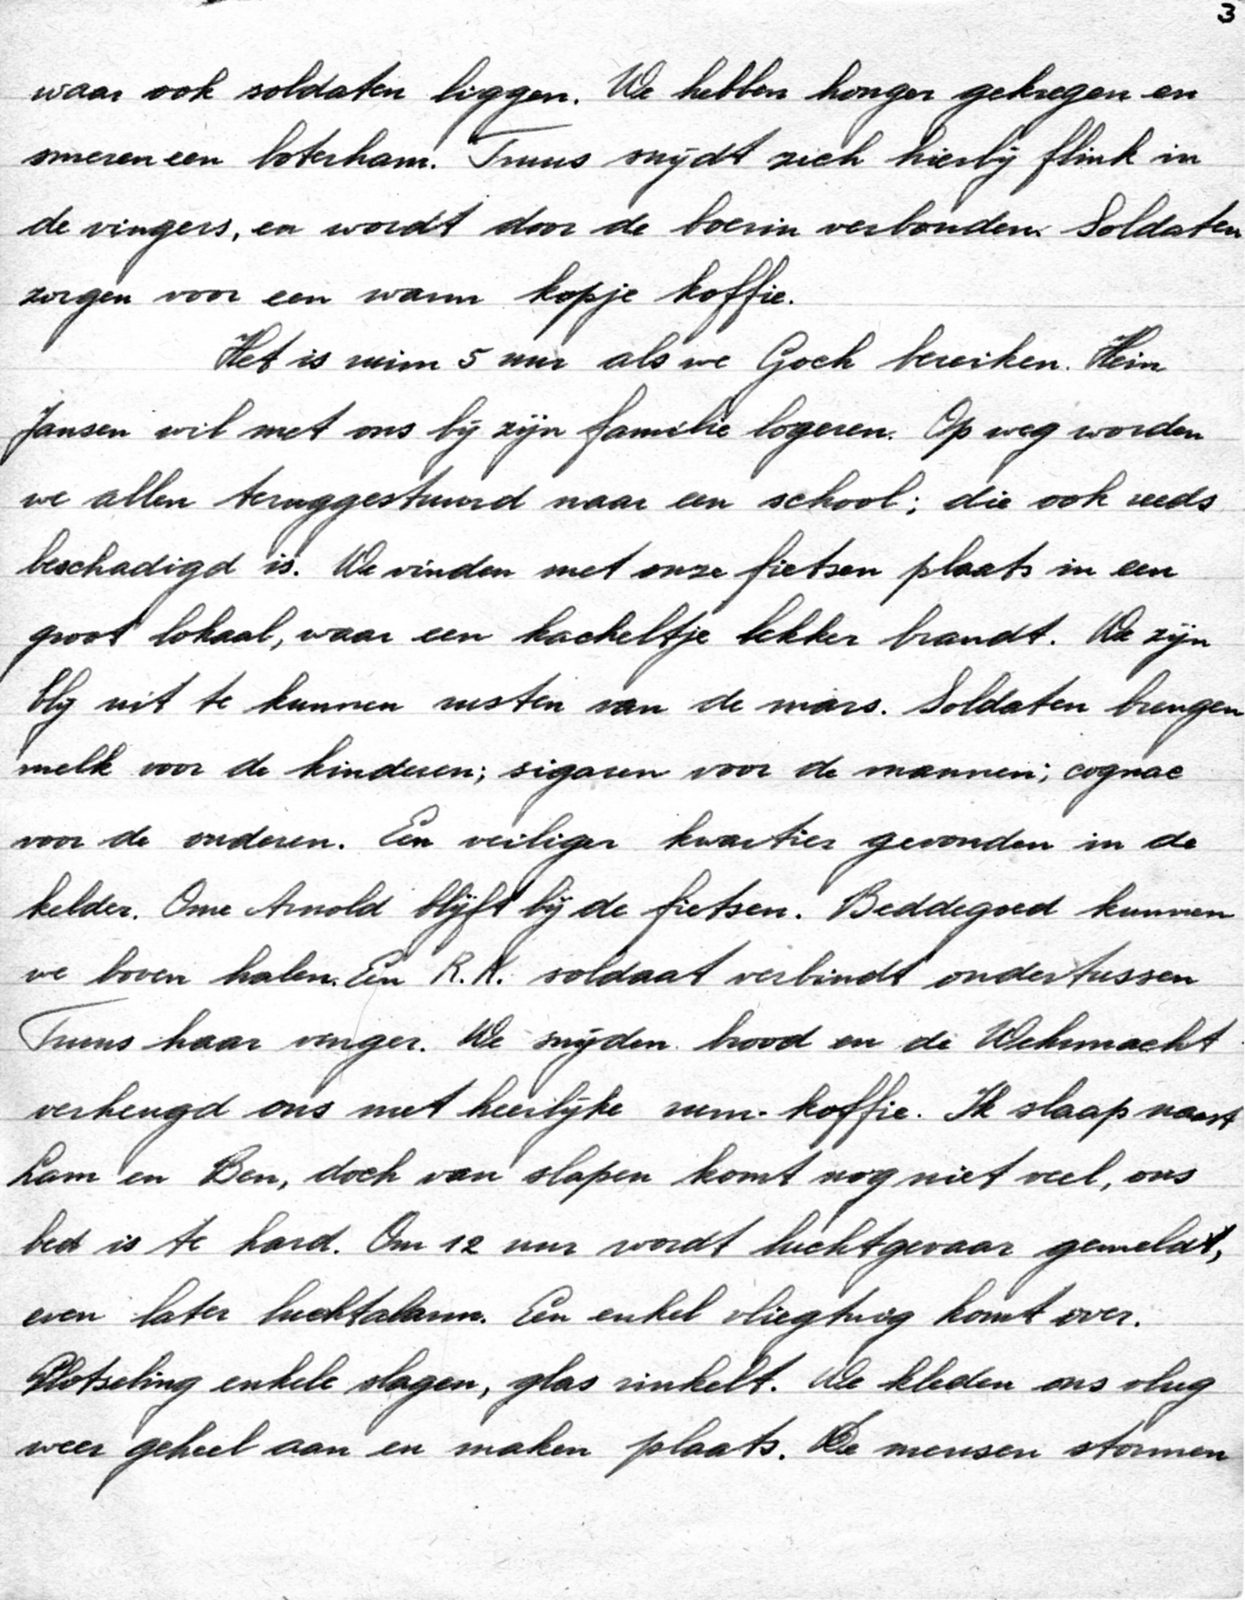 3
waar ook soldaten liggen. We hebben honger gekregen en
smeren een boterham. Truus snijdt zich hierbij flink in
de vingers, en wordt door de boerin verbonden. Soldaten
zorgen voor een warm kopje koffie.
Het is ruim 5 uur als we Goch bereiken. Hein
Jansen wil met ons bij zijn familie logeren. Op weg worden
we allen teruggestuurd naar een school; die ook reeds
beschadigd is. We vinden met onze fietsen plaats in een
groot lokaal, waar een kacheltje lekker brandt. We zijn
blij uit te kunnen rusten van de mars. Soldaten brengen
melk voor de kinderen; sigaren voor de mannen; cognac
voor de ouderen. Een veiliger kwartier gevonden in de
kelder. Ome Arnold blijft bij de fietsen. Beddegoed kunnen
we boven halen. Een R.K. soldaat verbindt ondertussen
Truus haar vinger. We snijden brood en de Wehrmacht
verheugd ons met heerlijke rum-koffie. Ik slaap naast
Lam en Ben, doch van slapen komt nog niet veel, ons
bed is te hard. Om 12 uur wordt luchtgevaar gemeldt,
even later luchtalarm. Een enkel vliegtuig komt over.
Plotseling enkele slagen, glas rinkelt. We kleden ons vlug
weer geheel aan en maken plaats. De mensen stormen